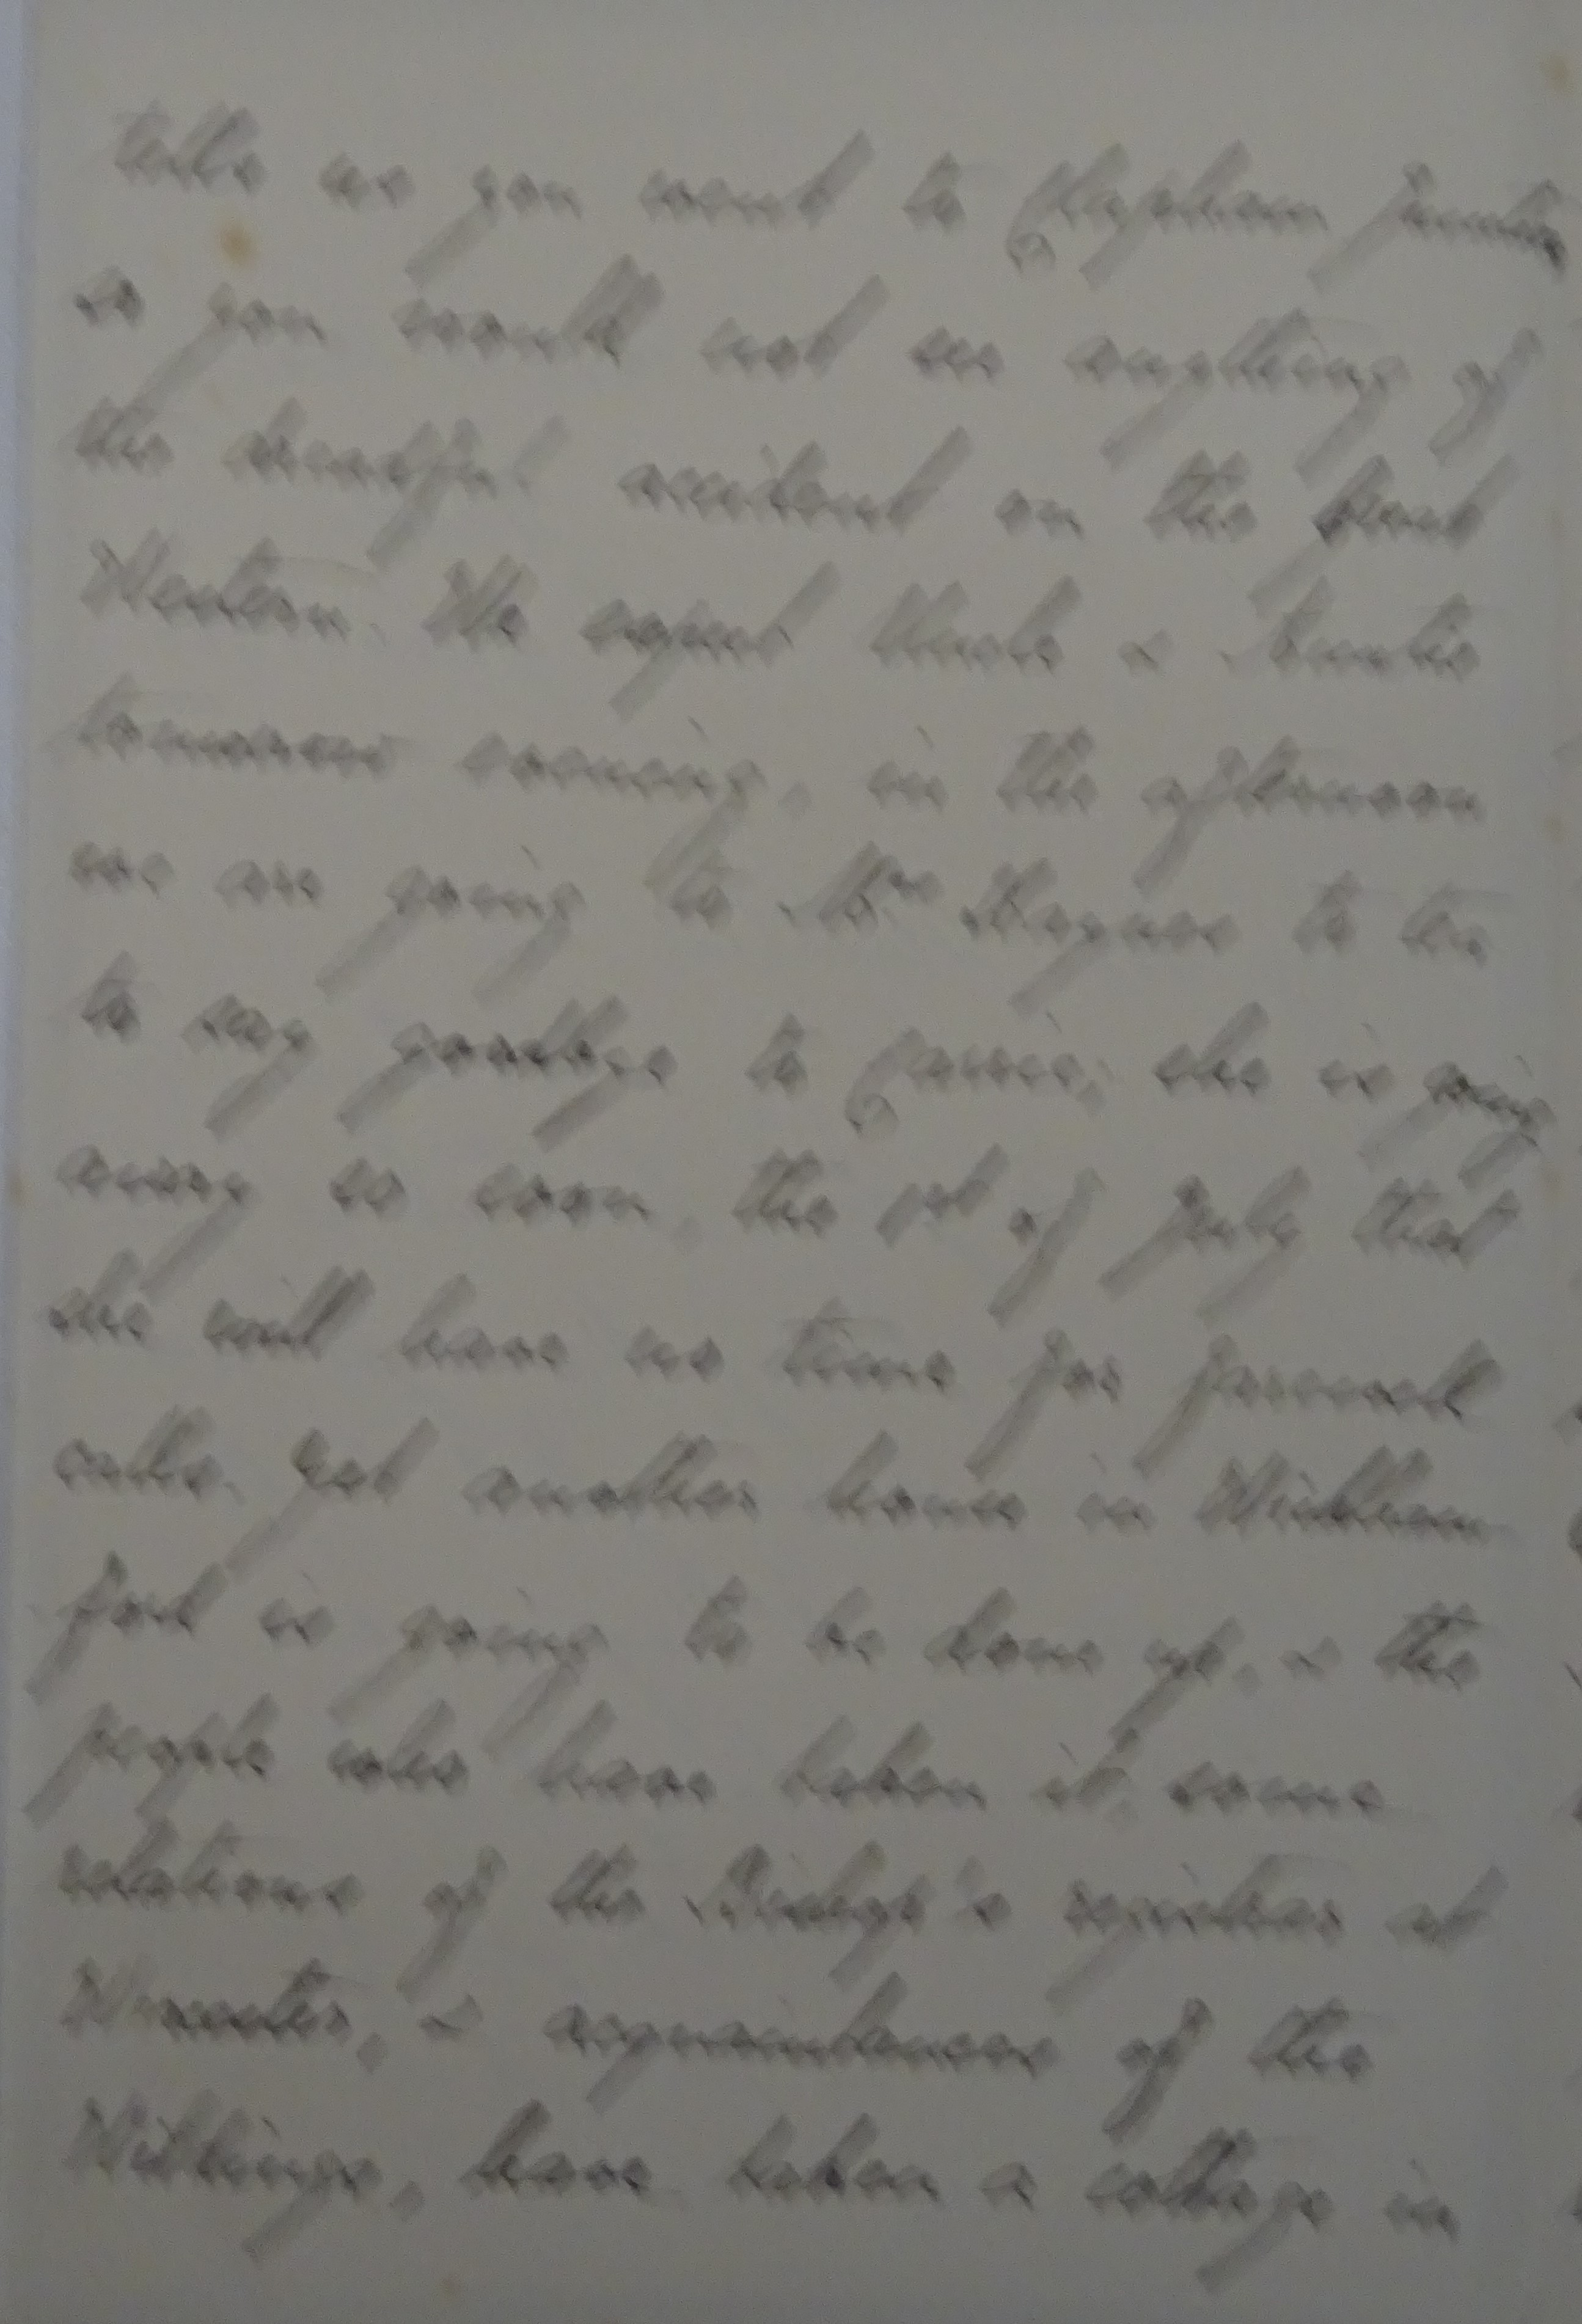 tells us you went to Clapham Junction
so you would not see anything of
the dreadful accident on the Great
Western. We expect Uncle & Auntie
tomorrow evening, in the afternoon
we are going to Mrs to tea
to say goodbye to Carrie, she is going
away so soon, the 1st of July that
she will have no time for farewell
calls. Yet another house in
is going to be done up, & the
people who have taken it, some
relations of the Bishop's registrar at
Worcester, & acquaintances of the
have taken a cottage in